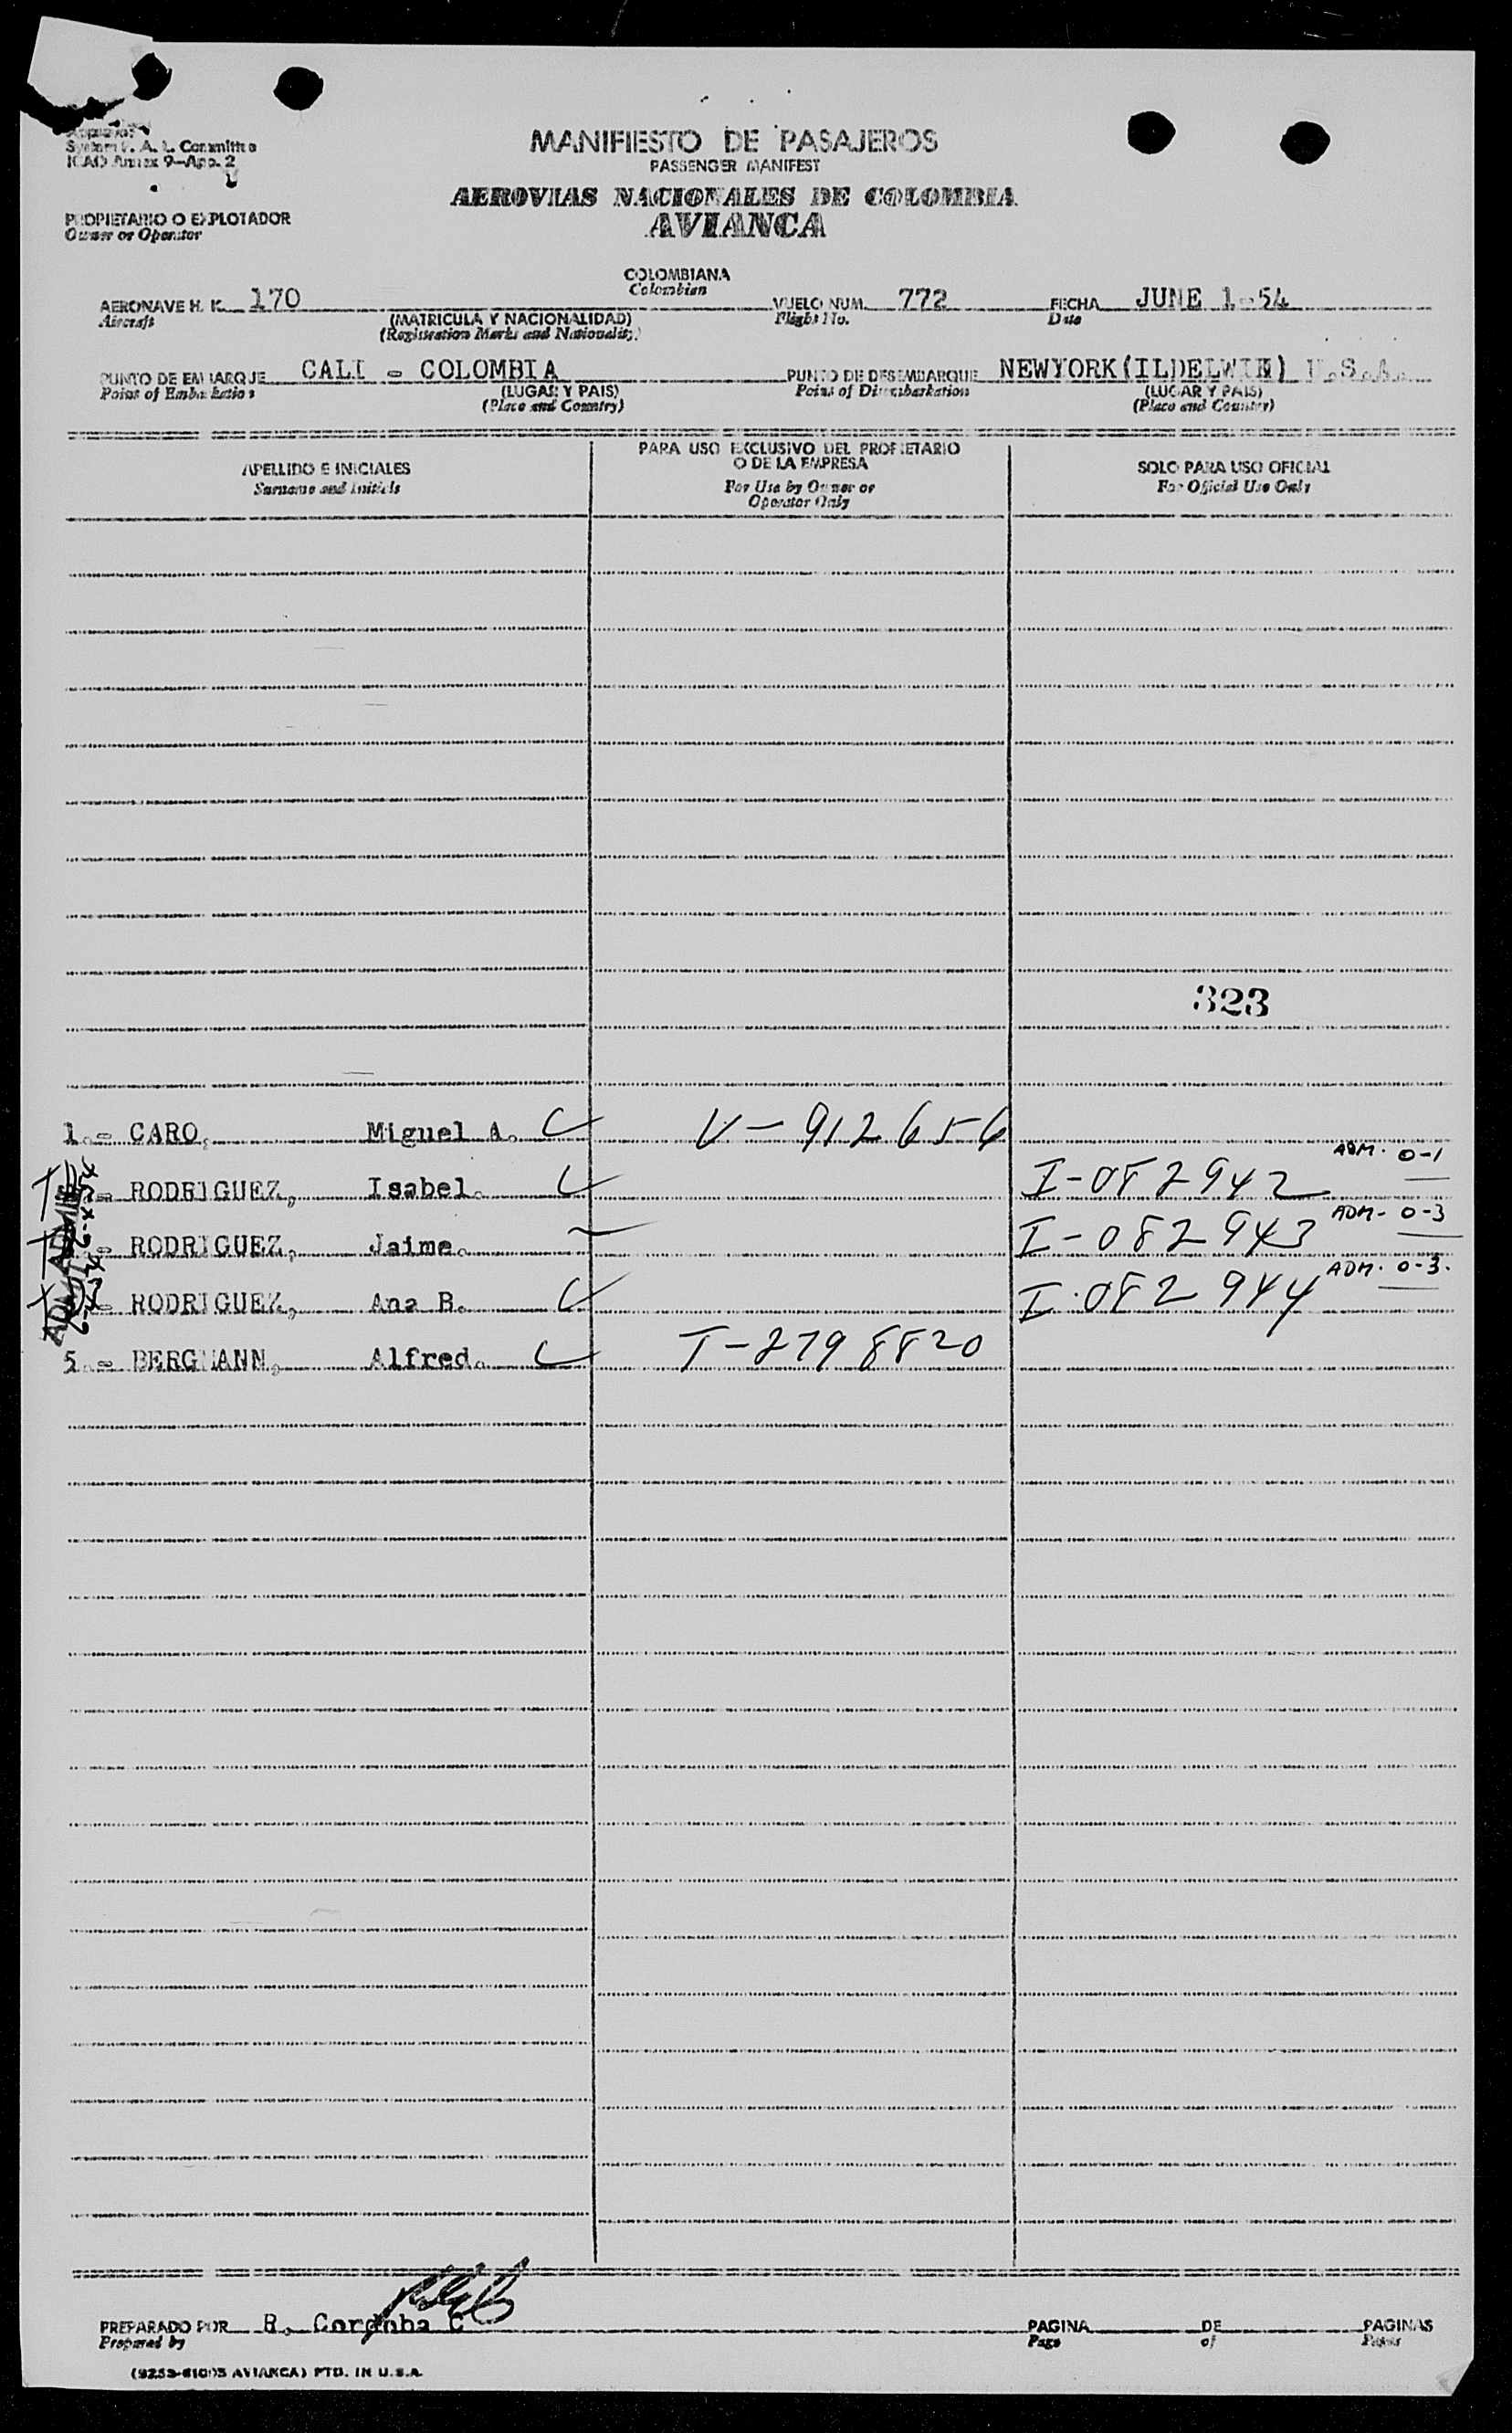 System F. A. L. Committee
ICAO Annex 9—App. 2
MANIFIESTO DE PASAJEROS
PASSENGER MANIFEST
AEROVIAS NACIONALES DE COLOMBIA
AVIANCA
PROPIETARIO O EXPLOTADOR
Owner or Operator
COLOMBIANA
Colombian
AERONAVE H. K. 170 VUELO NUM. 772 FECHA JUNE 1-54
Aircraft (MATRICULA Y NACIONALIDAD) Flight No. Date
(Registration Marks and Nationality)
PUNTO DE EMBARQUE CALI - COLOMBIA PUNTO DE DESEMBARQUE NEWYORK(ILDELWIN) U.S.A.
Point of Embarkation (LUGAR Y PAIS) Point of Disembarkation (LUGAR Y PAIS)
(Place and Country) (Place and Country)
APELLIDO E INICIALES
Surname and Initials
PARA USO EXCLUSIVO DEL PROPIETARIO
O DE LA EMPRESA
For Use by Owner or
Operator Only
SOLO PARA USO OFICIAL
For Official Use Only
323
1.- CARO, Miguel A. V-912656
- RODRIGUEZ, Isabel. I-082942 ADM. 0-1
- RODRIGUEZ, Jaime. I-082943 ADM- 0-3
- RODRIGUEZ, Ana B. I-082944 ADM. 0-3.
5.- BERGMANN, Alfred. T-2798820
ADMITTED
PREPARADO POR R. Cordoba C PAGINA DE PAGINAS
Prepared by Page of Pages
AVIANCA) PTD. IN U.S.A.